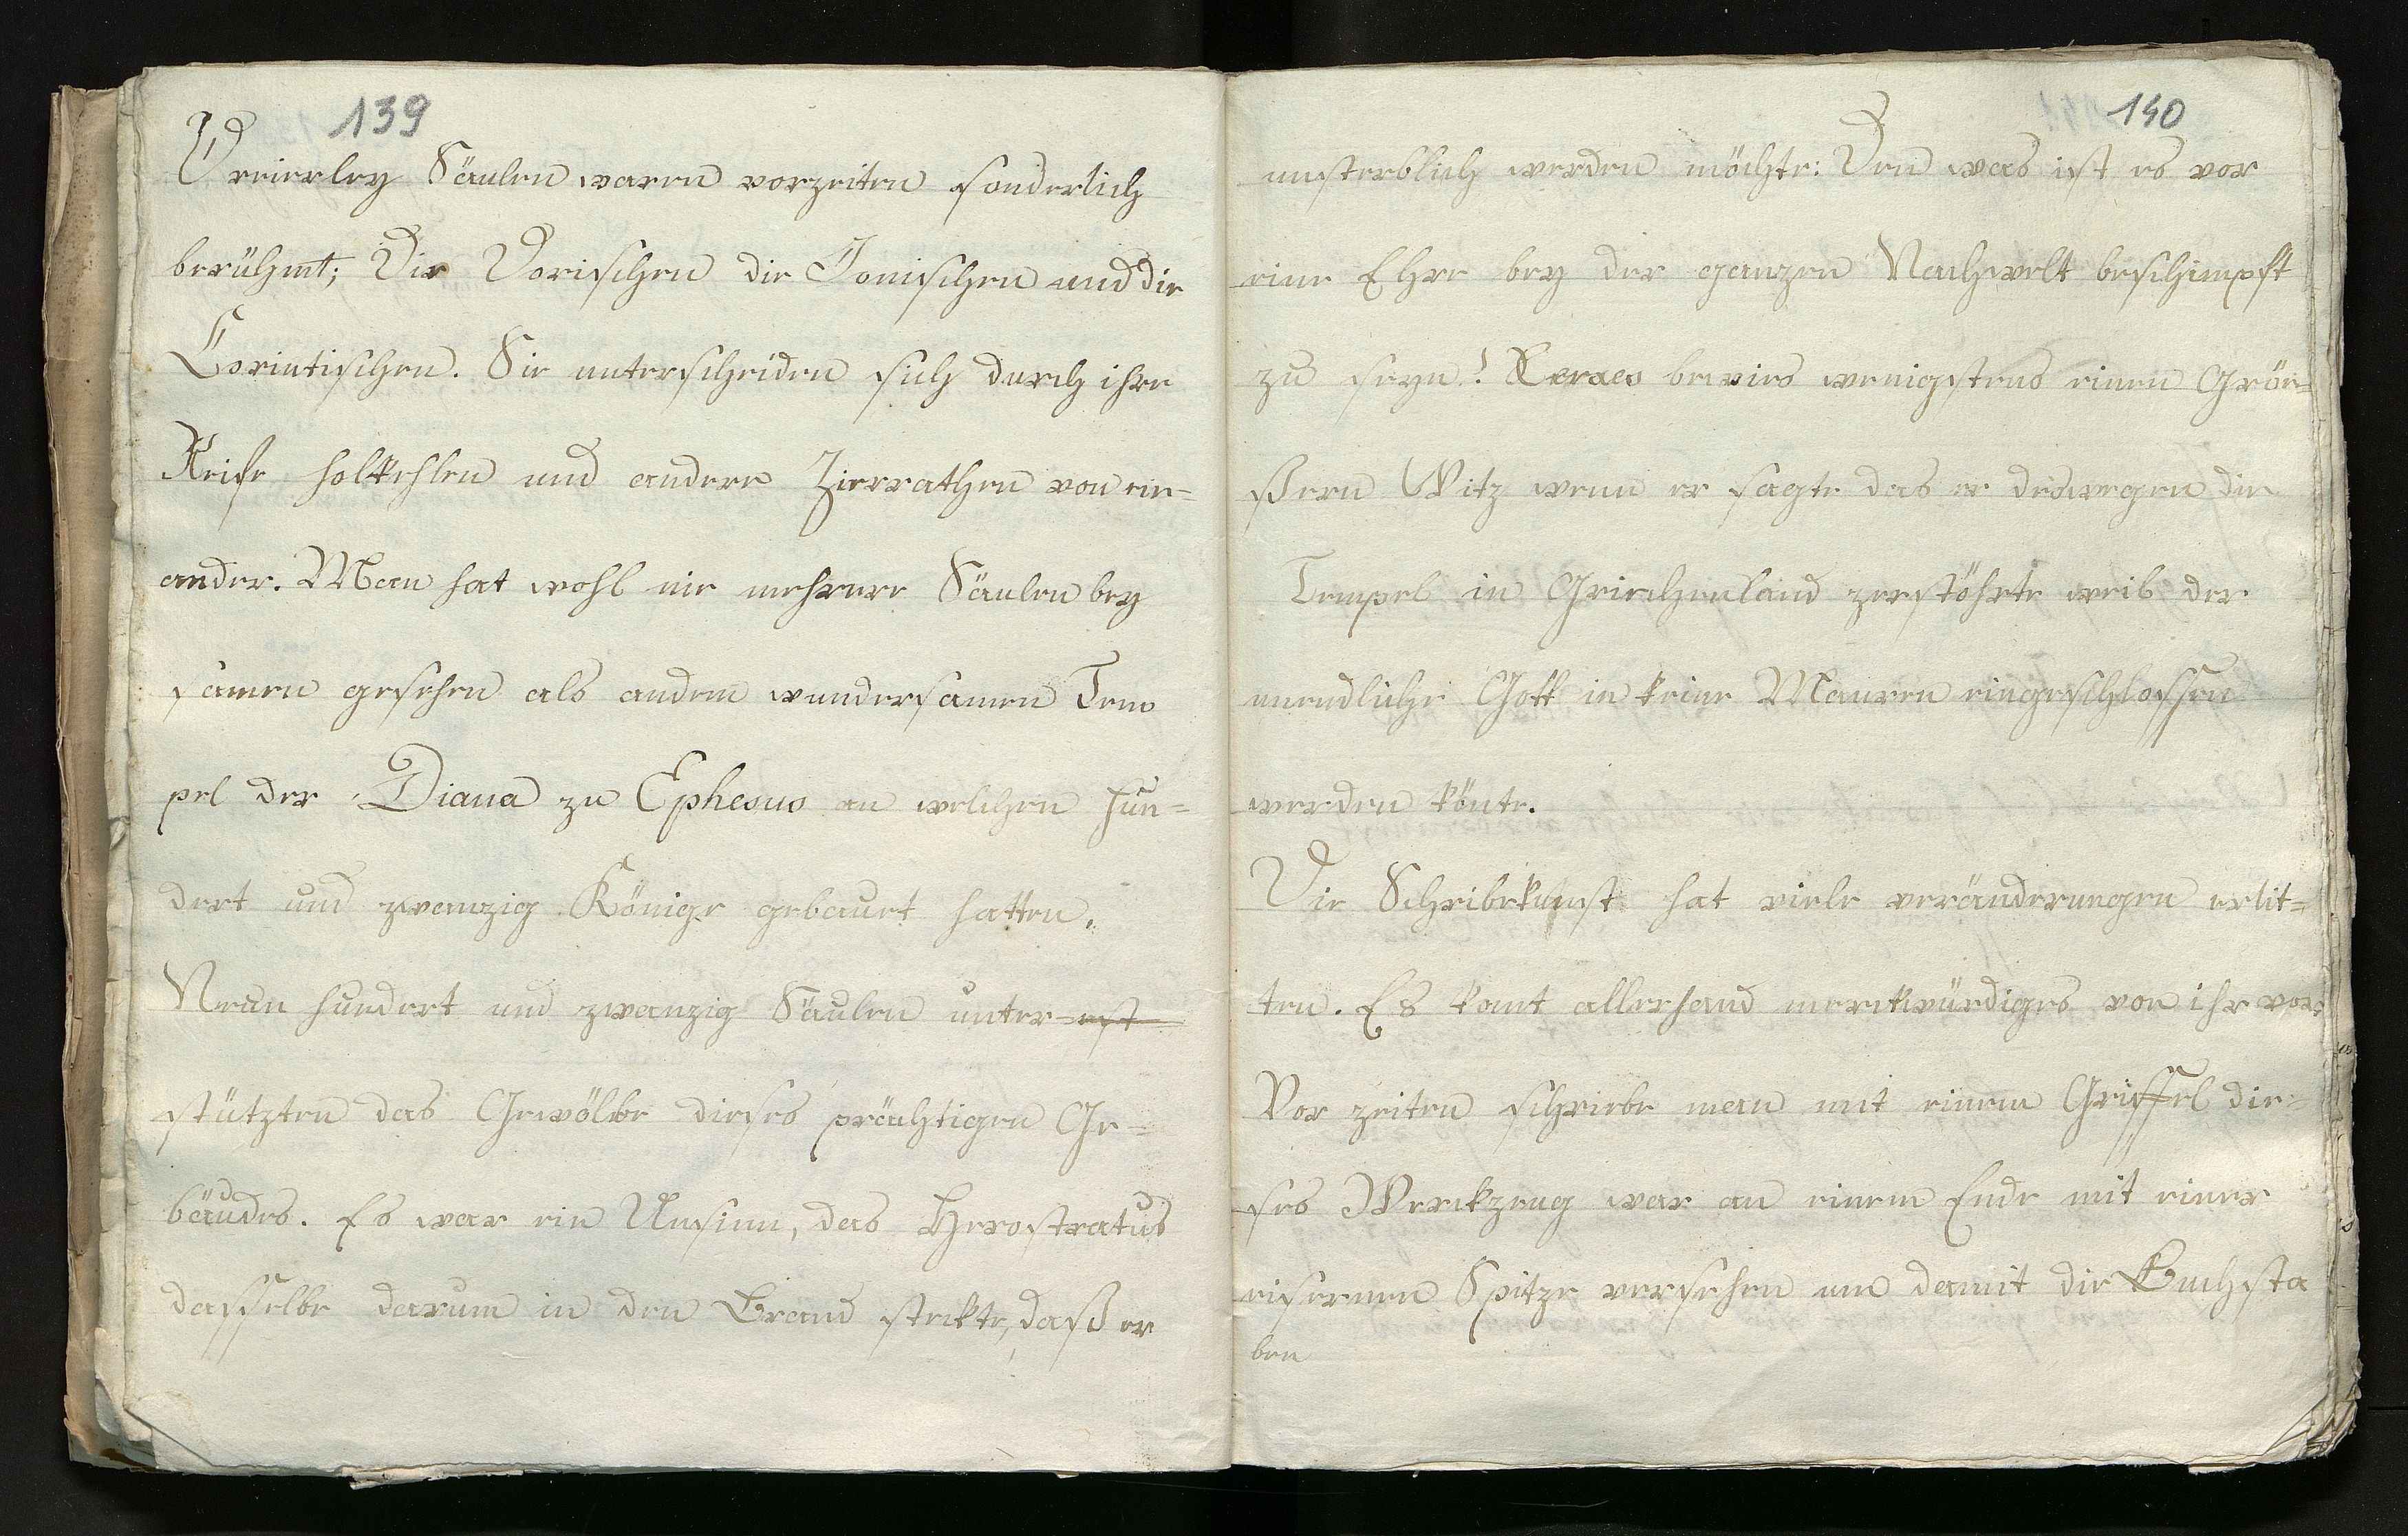 139
Dreierley Säulen waren vorzeiten sonderlich
berühmt; Die Dorischen die Jonischen und die
Corintischen. Sie unterscheiden sich durch ihre
Reife holkehlen und andere Zierrathen von ein=
ander. Man hat wohl nie mehrere Säulen bey
samen gesehen als andem wundersamen Tem
pel der Diana zu Ephesus an welchen hun=
dert und zwanzig Könige gebauet hatten.
Neun hundert und zwanzig Säulen unter=
stützten das Gewölbe dieses prächtigen Ge=
bäudes. Es war ein Unsinn, das Herostratus
dasselbe darum in den Brand stekte, daß er
140
unsterblich werden möchte: Den was ist es vor
eine Ehre bey der ganzen Nachwelt beschimpft
zu seyn! Xerxes bewies wenigstens einen Grö=
ßern Witz wenn er sagte das er deswegen die
Tempel in Griechenland zerstöhrte weil der
unendliche Gott in keine Mauren eingeschlossen
werden könte.
Die Schreibekunst hat viele veränderungen erlit=
ten. Es komt allerhand merckwürdiges von ihr vor,
Vor zeiten schriebe man mit einem Griffel die=
ses Werckzeug war an einem Ende mit einer
eisernen Spitze versehen um damit die Buchsta
ben